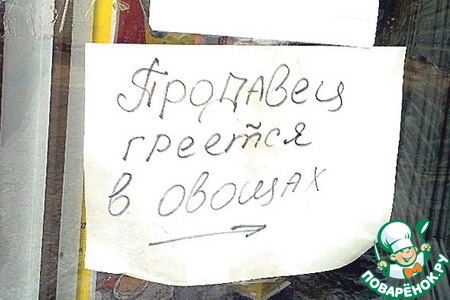 Продавец
греется
в овощах
ПОВАРЁНОК.РУ